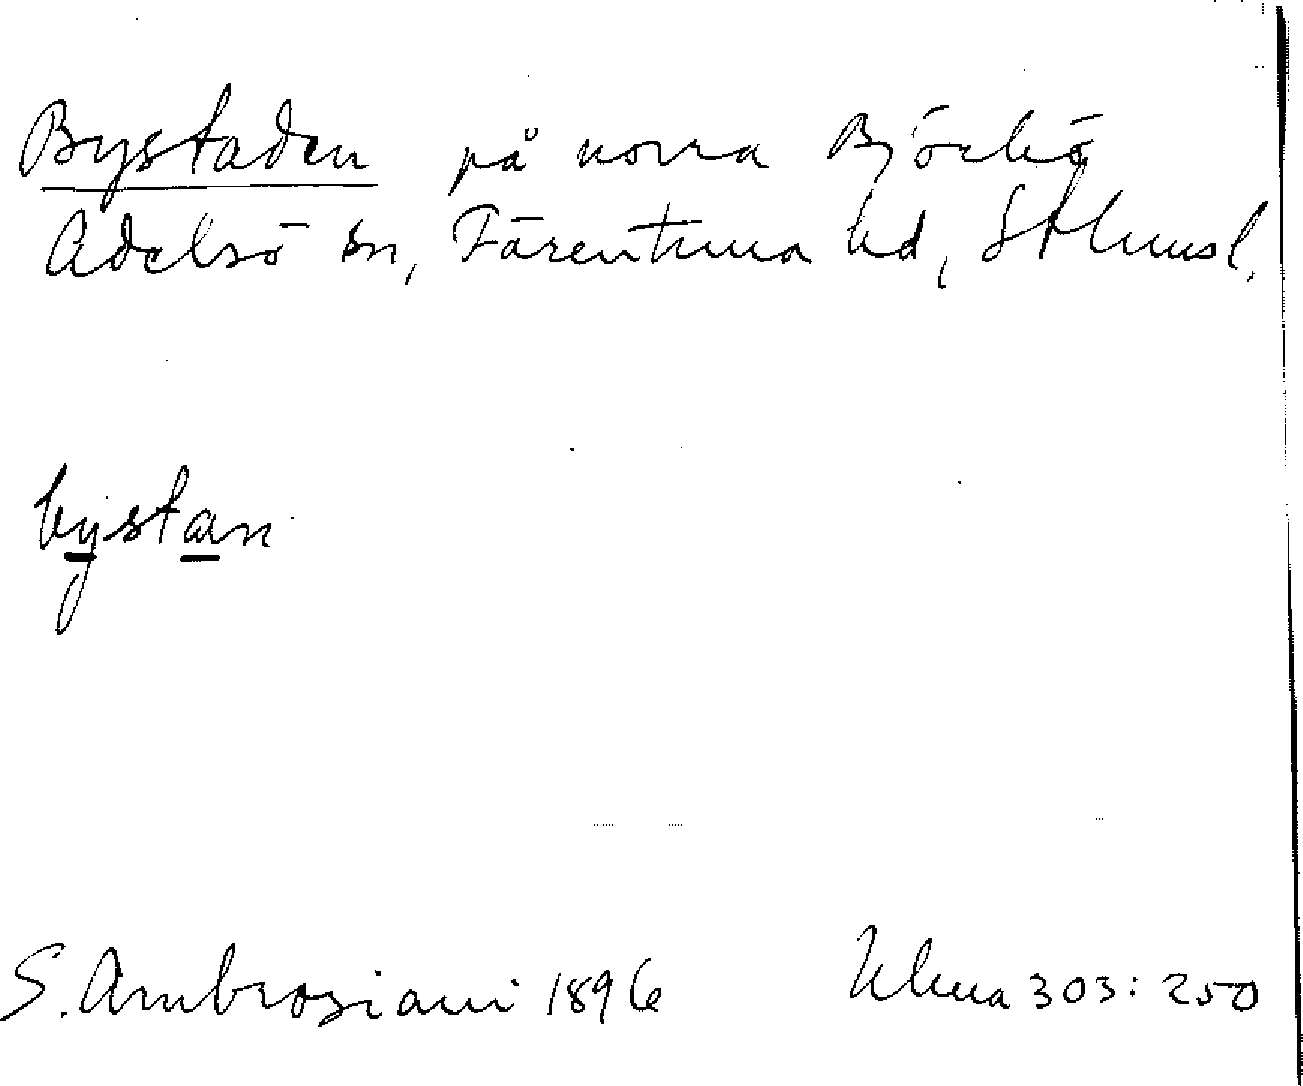 Bystaden på norra Björkö
Adelsö sn, Färentuna hd, Sthlmsl.
bystan
S. Ambrosiani 1896 Ulma 303:250